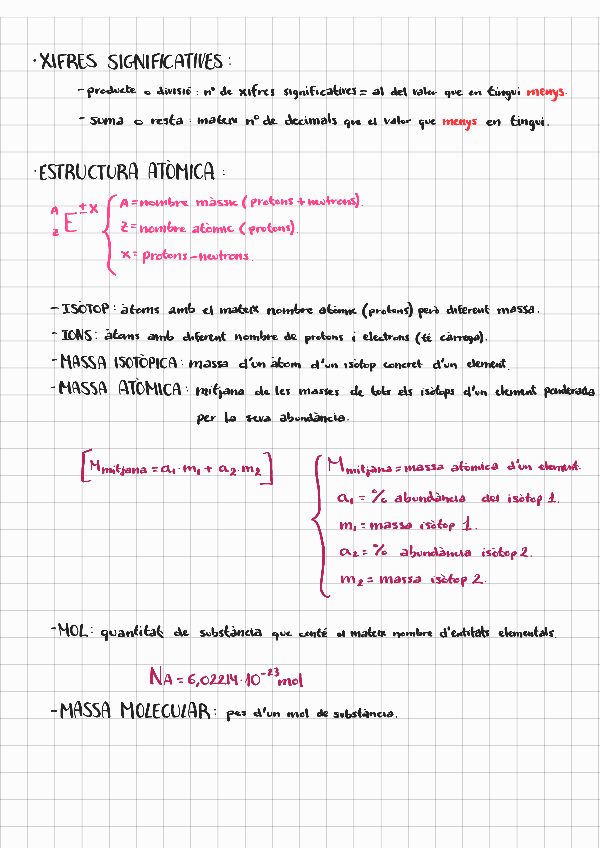 · XIFRES SIGNIFICATIVES:
- producte o divisió: nº de xifres significatives = al del valor que en tingui menys.
- suma o resta: mateix nº de decimals que el valor que menys en tingui.
· ESTRUCTURA ATÒMICA:
A Z E ±x { A = nombre màssic (protons + neutrons).
Z = nombre atòmic (protons).
x = protons - neutrons.
- ISÒTOP: àtoms amb el mateix nombre atòmic (protons) però diferent massa.
- IONS: àtoms amb diferent nombre de protons i electrons (té càrrega).
- MASSA ISOTÒPICA: massa d'un àtom d'un isòtop concret d'un element.
- MASSA ATÒMICA: mitjana de les masses de tots els isòtops d'un element ponderada
per la seva abundància.
[Mmitjana = a₁·m₁ + a₂·m₂]
{ Mmitjana = massa atòmica d'un element.
a₁ = % abundància del isòtop 1.
m₁ = massa isòtop 1.
a₂ = % abundància isòtop 2.
m₂ = massa isòtop 2.
- MOL: quantitat de substància que conté el mateix nombre d'entitats elementals.
NA = 6,02214·10⁻²³ mol
- MASSA MOLECULAR: pes d'un mol de substància.